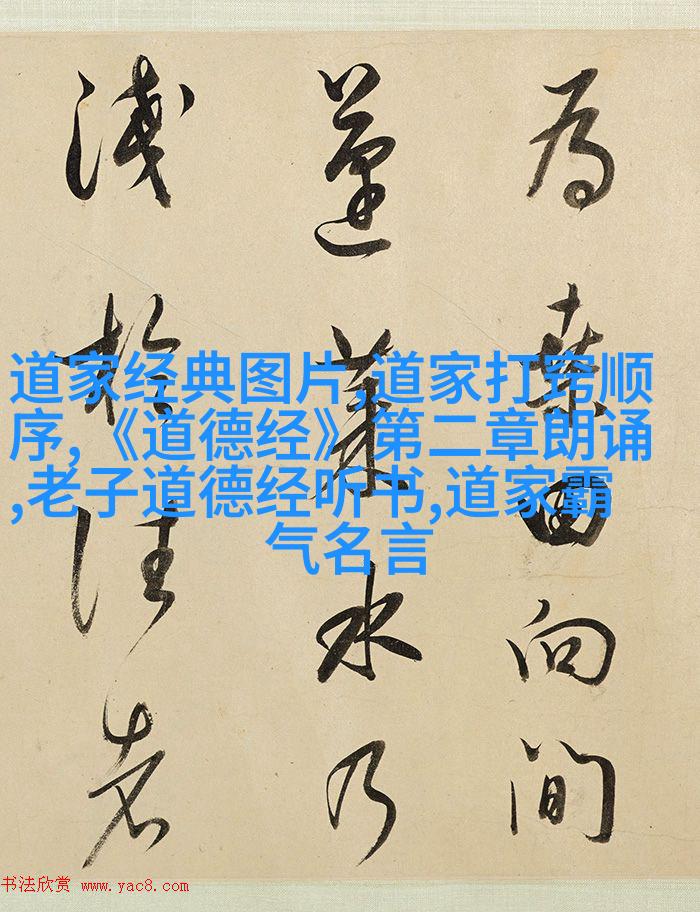 為桑田向間
蓬萊水乃
淺於往者
道家经典图片,道家打窍顺
序,《道德经》第二章朗诵
,老子道德经听书,道家霸
气名言
书法欣赏 www.yac8.com